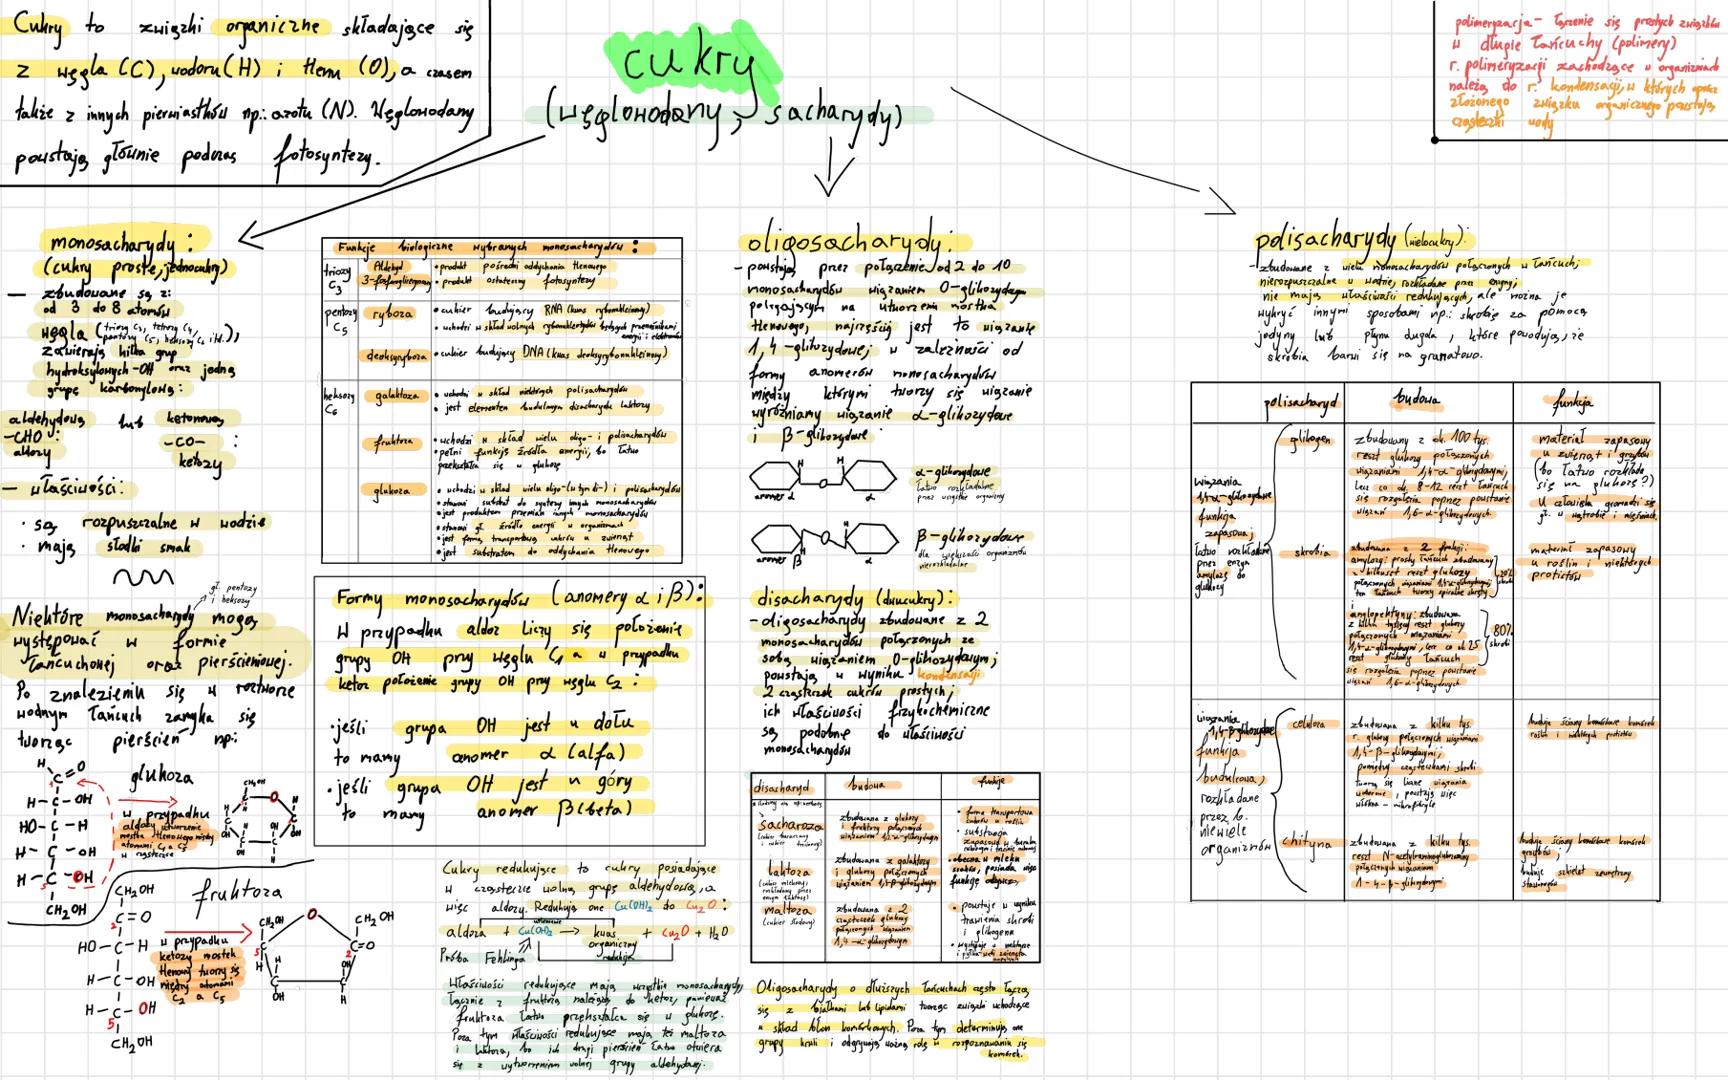 Cukry to związki organiczne składające się
z węgla (C), wodoru (H) i tlenu (O), a czasem
także z innych pierwiastków np.: azotu (N). Węglowodany
powstają głównie podczas fotosyntezy.
cukry
(węglowodany, sacharydy)
polimeryzacja - łączenie się prostych związków
w długie łańcuchy (polimery)
r. polimeryzacji zachodzące w organizmach
należą do r. kondensacji, w których oprócz
złożonego związku organicznego powstają
cząsteczki wody
monosacharydy:
(cukry proste, jednocukry)
— zbudowane są z:
od 3 do 8 atomów
węgla (triozy C3, tetrozy C4,
pentozy C5, heksozy C6 itd.),
zawierają kilka grup
hydroksylowych -OH oraz jedną
grupę karbonylową:
aldehydową lub ketonową
-CHO: -CO- :
aldozy ketozy
— właściwości:
· są rozpuszczalne w wodzie
· mają słodki smak
gł. pentozy
i heksozy
Niektóre monosacharydy mogą
występować w formie
łańcuchowej oraz pierścieniowej.
Po znalezieniu się w roztworze
wodnym łańcuch zamyka się
tworząc pierścień np.:
glukoza
w przypadku
aldozy utworzenie
mostka tlenowego między
atomami C1 a C5
w cząsteczce
fruktoza
w przypadku
ketozy mostek
tlenowy tworzy się
między atomami
C2 a C5
Funkcje biologiczne wybranych monosacharydów:
triozy
C3
Aldehyd
3-fosfoglicerynowy
• produkt pośredni oddychania tlenowego
• produkt ostateczny fotosyntezy
pentozy
C5
ryboza
• cukier budujący RNA (kwas rybonukleinowy)
• wchodzi w skład wolnych rybonukleotydów będących przenośnikami
energii i elektronów
deoksyryboza
• cukier budujący DNA (kwas deoksyrybonukleinowy)
heksozy
C6
galaktoza
• wchodzi w skład niektórych polisacharydów
• jest elementem budulcowym disacharydu laktozy
fruktoza
• wchodzi w skład wielu oligo- i polisacharydów
• pełni funkcję źródła energii, bo łatwo
przekształca się w glukozę
glukoza
• wchodzi w skład wielu oligo- (w tym di-) i polisacharydów
• stanowi substrat do syntezy innych monosacharydów
• jest produktem przemian innych monosacharydów
• stanowi gł. źródło energii w organizmach
• jest formą transportową cukru u zwierząt
• jest substratem do oddychania tlenowego
Formy monosacharydów (anomery α i β):
W przypadku aldoz liczy się położenie
grupy OH przy węglu C1 a w przypadku
ketoz położenie grupy OH przy węglu C2:
· jeśli grupa OH jest w dołu
to mamy anomer α (alfa)
· jeśli grupa OH jest w góry
to mamy anomer β (beta)
Cukry redukujące to cukry posiadające
w cząsteczce wolną grupę aldehydową, a
więc aldozy. Redukują one Cu(OH)2 do Cu2O:
utlenianie
aldoza + Cu(OH)2 → kwas organiczny + Cu2O + H2O
Próba Fehlinga
redukcja
Właściwości redukujące mają wszystkie monosacharydy,
łącznie z fruktozą należącą do ketoz, ponieważ
fruktoza łatwo przekształca się w glukozę.
Poza tym właściwości redukujące mają też maltoza
i laktoza, bo ich drugi pierścień łatwo otwiera
się z wytworzeniem wolnej grupy aldehydowej.
oligosacharydy:
- powstają przez połączenie od 2 do 10
monosacharydów wiązaniem O-glikozydowym
polegającym na utworzeniu mostka
tlenowego, najczęściej jest to wiązanie
1,4-glikozydowe; w zależności od
formy anomerów monosacharydów
między którymi tworzy się wiązanie
wyróżniamy wiązanie α-glikozydowe
i β-glikozydowe
anomer α α
α-glikozydowe
łatwo rozkładalne
przez wszystkie organizmy
anomer β α
β-glikozydowe
dla większości organizmów
nierozkładalne
disacharydy (dwucukry):
- oligosacharydy zbudowane z 2
monosacharydów połączonych ze
sobą wiązaniem O-glikozydowym;
powstają w wyniku kondensacji
2 cząsteczek cukrów prostych;
ich właściwości fizykochemiczne
są podobne do właściwości
monosacharydów
disacharyd budowa funkcje
sacharoza
zbudowana z glukozy
i fruktozy połączonych
wiązaniem
• forma transportowa
cukrów u roślin
• substancja
zapasowa
laktoza
zbudowana z galaktozy
i glukozy połączonych
wiązaniem 1,4-β-glikozydowym
• obecna w mleku
ssaków, posiada więc
funkcję odżywczą
maltoza
(cukier słodowy)
zbudowana z 2
cząsteczek glukozy
połączonych wiązaniem
1,4-α-glikozydowym
• powstaje w wyniku
trawienia skrobi
i glikogenu
Oligosacharydy o dłuższych łańcuchach często łączą
się z białkami lub lipidami tworząc związki wchodzące
w skład błon komórkowych. Poza tym determinują one
grupy krwi i odgrywają ważną rolę w rozpoznawaniu się
komórek.
polisacharydy (wielocukry):
zbudowane z wielu monosacharydów połączonych w łańcuch;
nierozpuszczalne w wodzie, rozkładane przez enzymy;
nie mają właściwości redukujących, ale można je
wykryć innymi sposobami np.: skrobię za pomocą
jodyny lub płynu Lugola, które powodują, że
skrobia barwi się na granatowo.
polisacharyd budowa funkcja
wiązania
1,4-α-glikozydowe
funkcja
zapasowa;
łatwo rozkładane
przez enzym
amylazę do
glukozy
glikogen
zbudowany z ok. 100 tys.
reszt glukozy połączonych
wiązaniami 1,4-α-glikozydowymi,
lecz co ok. 8-12 reszt łańcuch
się rozgałęzia poprzez powstanie
wiązań 1,6-α-glikozydowych.
materiał zapasowy
u zwierząt i grzybów
(bo łatwo rozkłada
się na glukozę?)
U człowieka gromadzi się
gł. w wątrobie i mięśniach.
skrobia
zbudowana z 2 frakcji:
amylozy: prosty łańcuch zbudowany
z kilkuset reszt glukozy
połączonych wiązaniami 1,4-α-glikozydowymi
ten łańcuch tworzy spiralne skręty
20%
i
amylopektyny: zbudowana
z kilku tysięcy reszt glukozy
połączonych wiązaniami
1,4-α-glikozydowymi, lecz co ok. 25
reszt glukozy łańcuch
się rozgałęzia poprzez powstanie
wiązań 1,6-α-glikozydowych
80%
skrobi
materiał zapasowy
u roślin i niektórych
protistów
wiązania
1,4-β-glikozydowe
funkcja
budulcowa;
rozkładane
przez b.
niewiele
organizmów
celuloza
zbudowana z kilku tys.
r. glukozy połączonych wiązaniami
1,4-β-glikozydowymi;
pomiędzy cząsteczkami
tworzą się liczne wiązania
wodorowe, powstają więc
włókna - mikrofibryle
buduje ściany komórkowe komórek
roślin i niektórych protistów
chityna
zbudowana z kilku tys.
reszt N-acetyloglukozaminy
połączonych wiązaniami
1-4-β-glikozydowymi
buduje ściany komórkowe komórek
grzybów;
buduje szkielet zewnętrzny
stawonogów